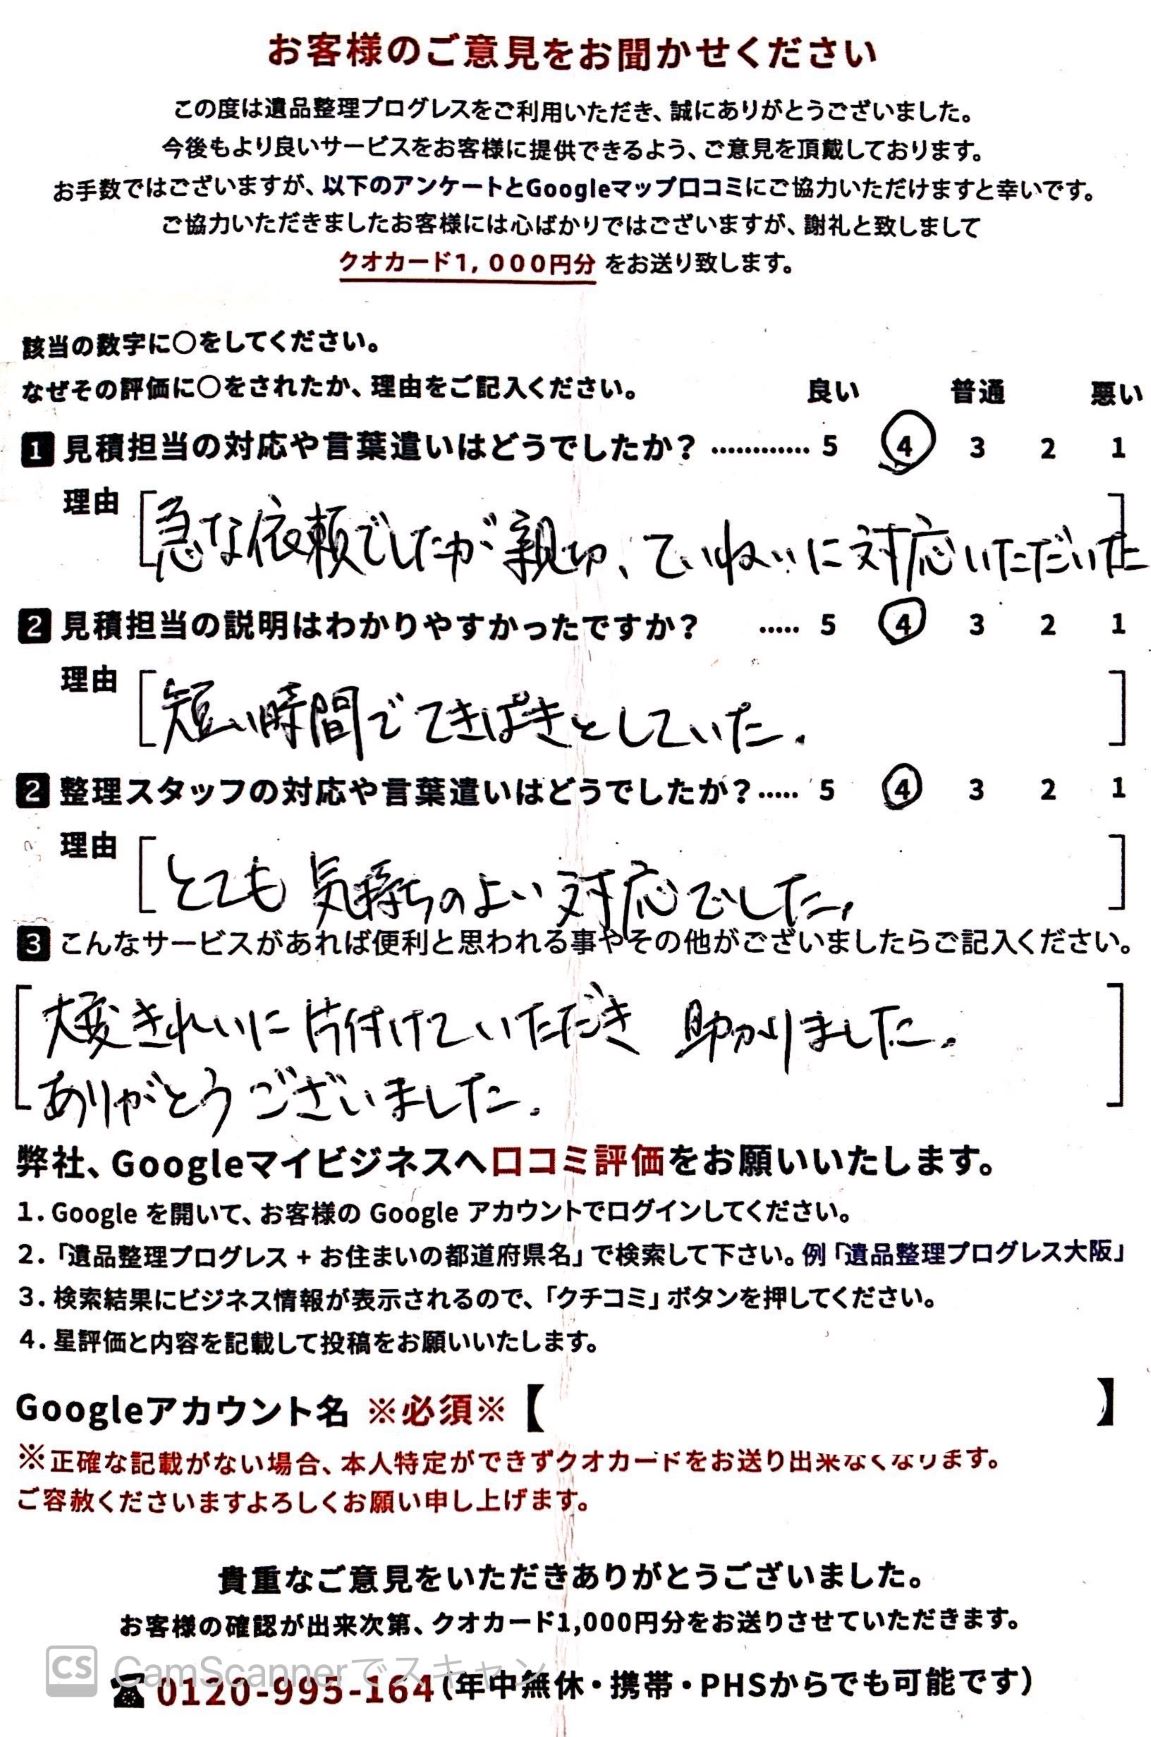 お客様のご意見をお聞かせください
この度は遺品整理プログレスをご利用いただき、誠にありがとうございました。
今後もより良いサービスをお客様に提供できるよう、ご意見を頂戴しております。
お手数ではございますが、以下のアンケートとGoogleマップ口コミにご協力いただけますと幸いです。
ご協力いただきましたお客様には心ばかりではございますが、謝礼と致しまして
クオカード1,000円分 をお送り致します。
該当の数字に〇をしてください。
なぜその評価に〇をされたか、理由をご記入ください。 良い 普通 悪い
1 見積担当の対応や言葉遣いはどうでしたか? ............ 5 4 3 2 1
理由 [急な依頼でしたが親切、ていねいに対応いただいた]
2 見積担当の説明はわかりやすかったですか? ..... 5 4 3 2 1
理由 [短い時間でてきぱきとしていた.]
2 整理スタッフの対応や言葉遣いはどうでしたか?..... 5 4 3 2 1
理由 [とても気持ちのよい対応でした.]
3 こんなサービスがあれば便利と思われる事やその他がございましたらご記入ください。
[大変きれいに片付けていただき 助かりました.
ありがとうございました.]
弊社、Googleマイビジネスへ口コミ評価をお願いいたします。
1. Google を開いて、お客様の Google アカウントでログインしてください。
2.「遺品整理プログレス + お住まいの都道府県名」で検索して下さい。例「遺品整理プログレス大阪」
3. 検索結果にビジネス情報が表示されるので、「クチコミ」ボタンを押してください。
4. 星評価と内容を記載して投稿をお願いいたします。
Googleアカウント名 ※必須※【 】
※正確な記載がない場合、本人特定ができずクオカードをお送り出来なくなります。
ご容赦くださいますよろしくお願い申し上げます。
貴重なご意見をいただきありがとうございました。
お客様の確認が出来次第、クオカード1,000円分をお送りさせていただきます。
CS CamScannerでスキャン
☎0120-995-164(年中無休・携帯・PHSからでも可能です)